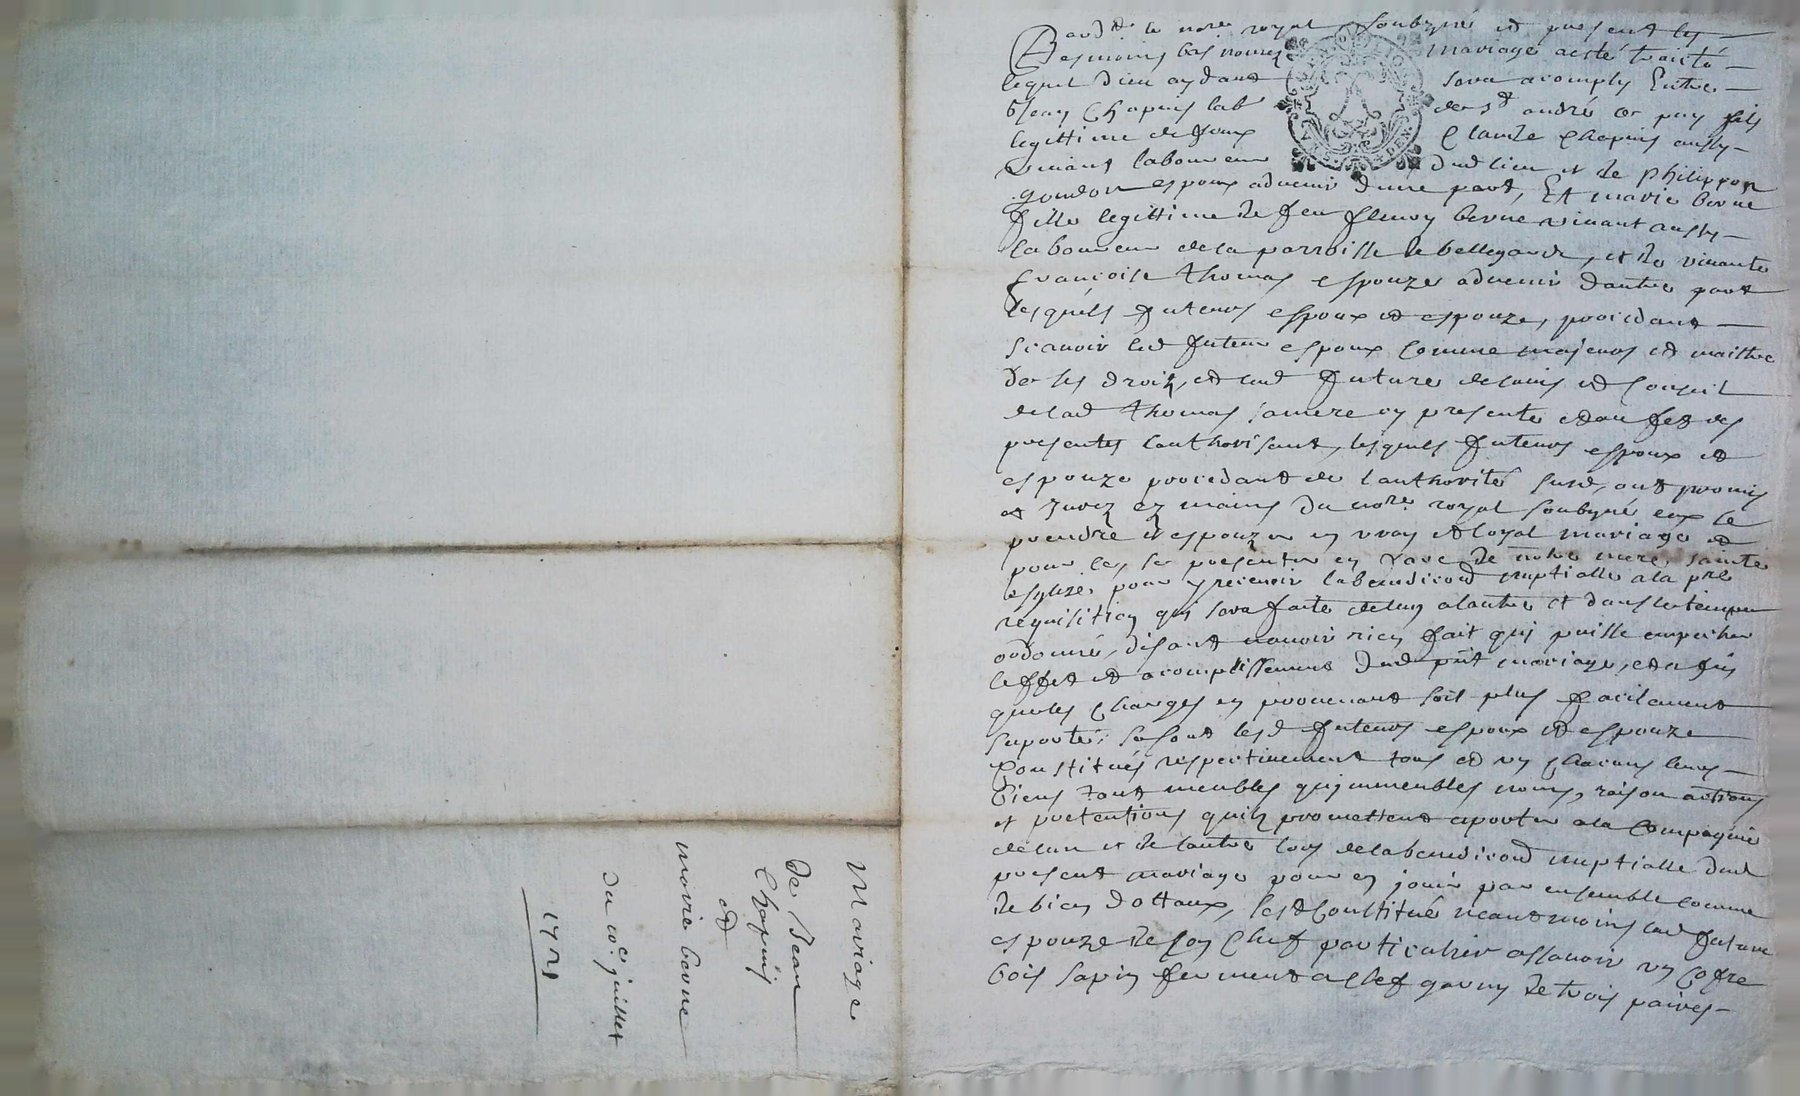 Mariage
de Jean
Chapuis
et
marie berne
du 10e juillet
1721
Pard.t le nore. royal soubzné et present les
tesmoins bas nomez mariage a esté traicté
lequel dieu aydant sera acomply Entre
Jean Chapuis lab. de st andré fils
legittime de feux Claude Chapuis aussy
vivant laboureur dud lieu et de philippon
goudon espoux advenir dune part, Et marie berne
fille legittime de feu fleury berne vivant aussy
laboureur de la parroisse de bellegarde, et de vivante
francoise thomas espouze advenir dautre part
lesquels futeurs espoux et espouze, procedant
scavoir led futeur espoux comme majeurs et maistre
de ses droiz, et lad future de lavis et conseil
de lad thomas sa mere icy presente et au fet des
presentes lauthorisant, lesquels futeurs espoux et
espouze procedant de lauthorité susd, ont promis
et jurez ez mains du nore. royal soubzné eux se
prendre et espouzer en vray et loyal mariage et
pour ce, se presenter en face de notre mere sainte
esglize pour y recevoir la benediction nuptialle a la pre
requisition quj sera faite de lun a lautre et dans le temps
ordonné, disant navoir rien fait quj puisse empecher
leffet et acomplissement dud pnt mariage, et afin
que les charges en provenant soit plus facilement
suporté; se sont lesd futeurs espoux et espouze
Constitués respectivement tous et un chacuns leurs
biens tant meubles quj immeubles noms, raison actions
et pretentions quilz promettent aporter a la Compagnie
de lun et de lautre lors de la benediction nuptialle dud
present mariage pour en jouir par ensemble comme
de bien dottaux, sest Constitué neantmoins lad future
espouze de son chef particulier assavoir un cofre
bois sapin ferment a clef garny de trois paires